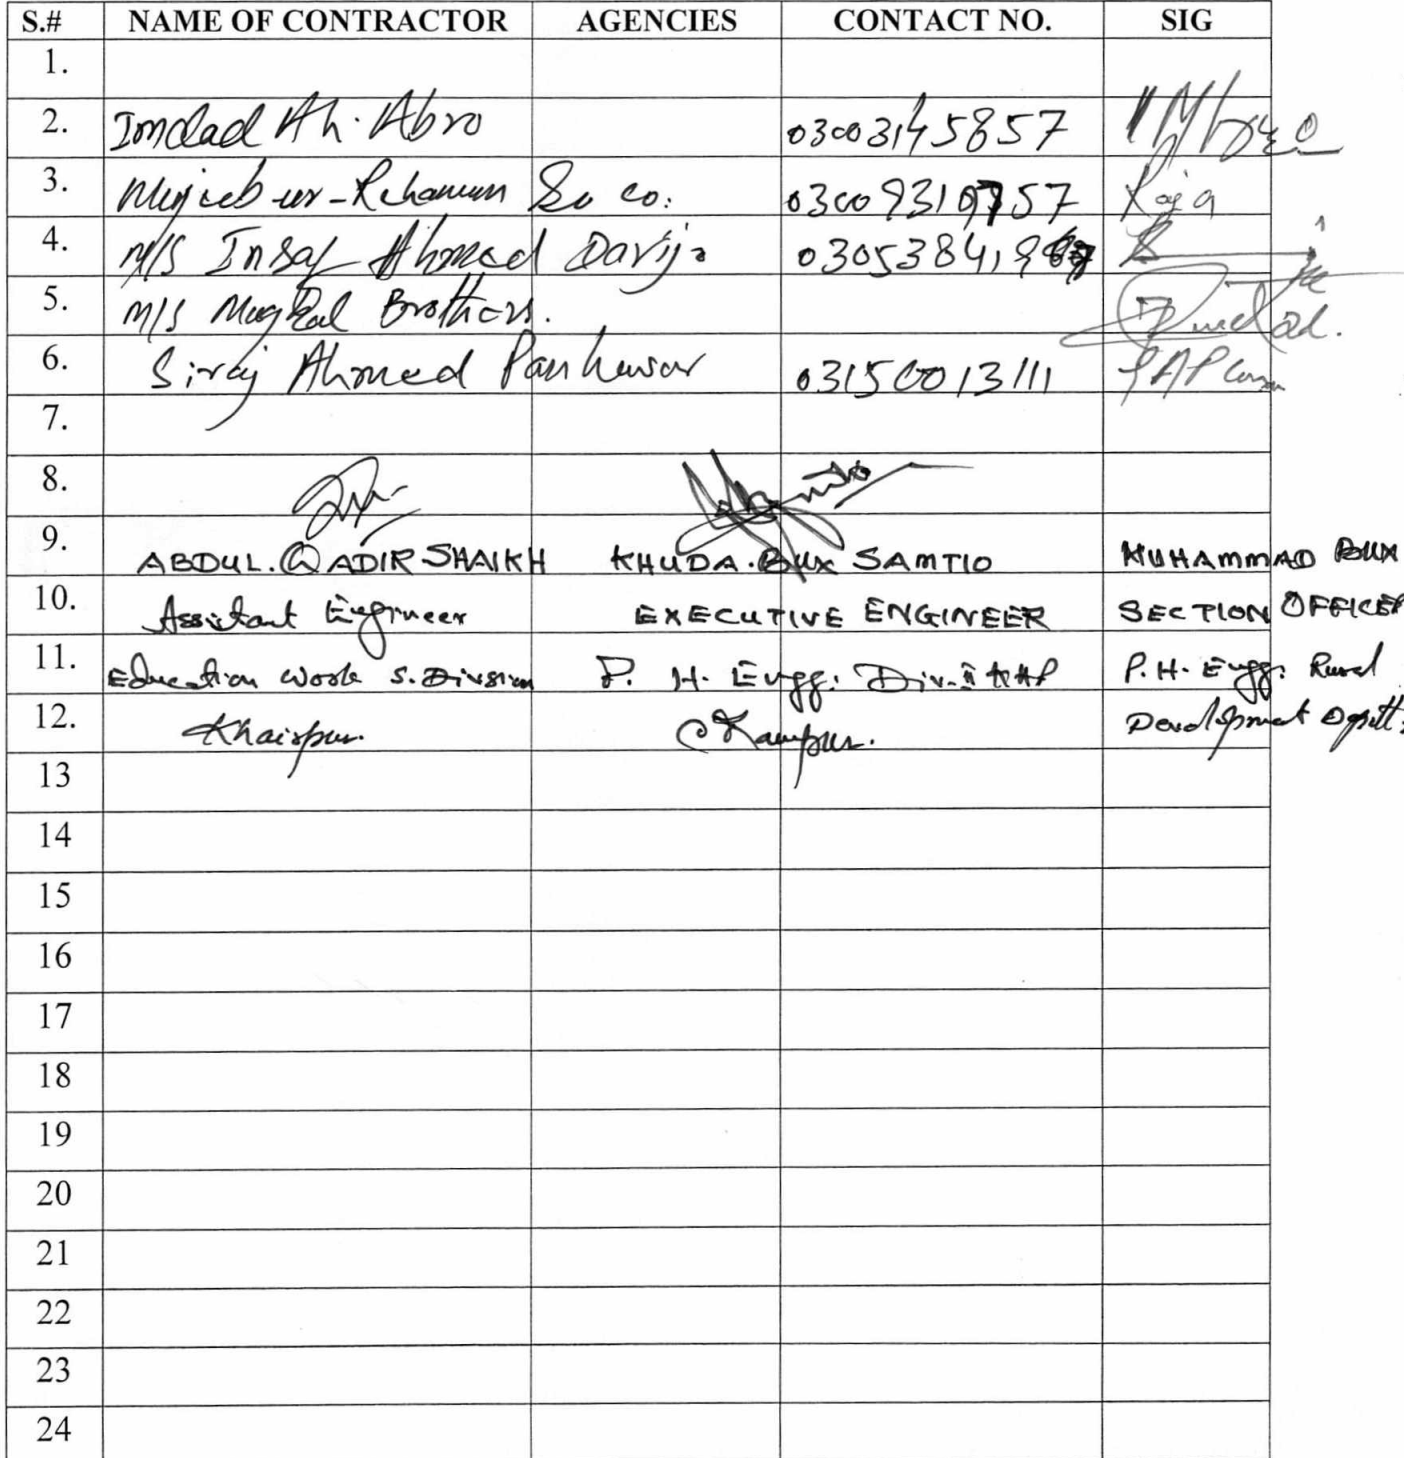 S.# NAME OF CONTRACTOR AGENCIES CONTACT NO. SIG
1.
2. Imdad Ah. Abro 03003145857
3. Mujeeb-ur-Rehaman & co. Raja
4. M/S Insaf Ahmed
5. M/S Mughal Brothers.
6. Siraj Ahmed Panhwar 03150013111
7.
8.
9. ABDUL.QADIR SHAIKH KHUDA.BUX SAMTIO MUHAMMAD BUX
10. Assistant Engineer EXECUTIVE ENGINEER SECTION OFFICER
11. Education Work S. Division P. H. Engg: P.H. Engg: Rural
12. Khairpur. Development
13
14
15
16
17
18
19
20
21
22
23
24